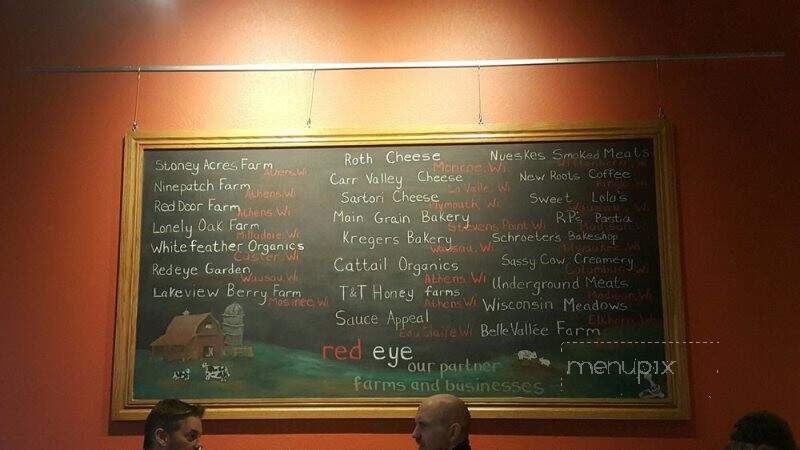 Stoney Acres Farm
Athens, Wi
Ninepatch Farm
Athens, Wi
Red Door Farm
Athens, Wi
Lonely Oak Farm
Milladore, Wi
Whitefeather Organics
Custer, Wi
Redeye Garden
Wausau, Wi
Lakeview Berry Farm
Mosinee, Wi
Roth Cheese
Monroe, Wi
Carr Valley Cheese
La Valle, Wi
Sartori Cheese
Plymouth, Wi
Main Grain Bakery
Stevens Point Wi
Kregers Bakery
Wausau, Wi
Cattail Organics
Athens Wi
T&T Honey farms
Athens, Wi
Sauce Appeal
Eau Claire, Wi
Nueskes Smoked Meats
New Roots Coffee
Sweet Lola's
R.P's Pastia
Madison
Schroeter's Bakeshop
Sassy Cow Creamery
Columbus
Underground Meats
Madison, Wi
Wisconsin Meadows
Elkhorn
Belle Vallée Farm
red eye
our partner
farms and businesses
menupix